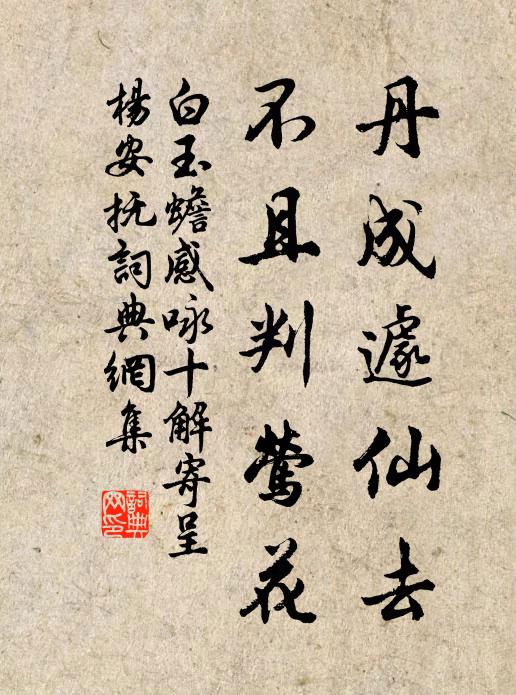 丹成遽仙去
不且判莺花
白玉蟾感咏十解寄呈
楊安抚詞典網集
詞典
网印